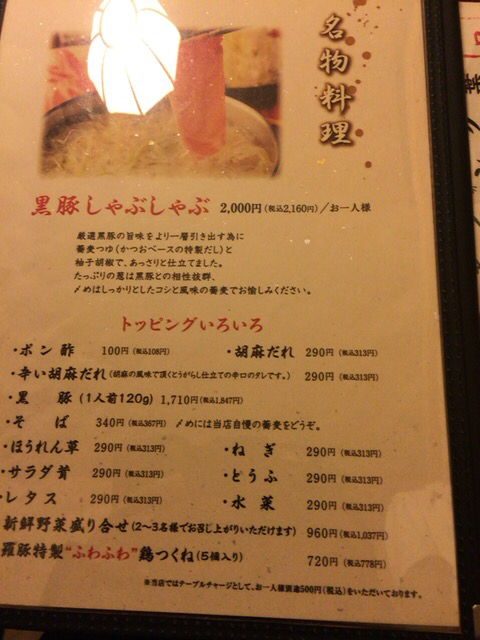 名物料理
黒豚しゃぶしゃぶ 2,000円(税込2,160円)/お一人様
厳選黒豚の旨味をより一層引き出す為に
蕎麦つゆ(かつおベースの特製だし)と
柚子胡椒で、あっさりと仕立てました。
たっぷりの葱は黒豚との相性抜群、
〆めはしっかりとしたコシと風味の蕎麦でお愉しみください。
トッピングいろいろ
・ポン酢 100円(税込108円) ・胡麻だれ 290円(税込313円)
・辛い胡麻だれ(胡麻の風味で頂くとうがらし仕立ての辛口のタレです。) 290円(税込313円)
・黒 豚(1人前120g) 1,710円(税込1,847円)
・そ ば 340円(税込367円) 〆めには当店自慢の蕎麦をどうぞ。
・ほうれん草 290円(税込313円) ・ねぎ 290円(税込313円)
・サラダ茸 290円(税込313円) ・とうふ 290円(税込313円)
・レタス 290円(税込313円) ・水菜 290円(税込313円)
新鮮野菜盛り合せ(2〜3名様でお召し上がりいただけます) 960円(税込1,037円)
羅豚特製“ふわふわ”鶏つくね(5個入り) 720円(税込778円)
※当店ではテーブルチャージとして、お一人様別途500円(税込)をいただいております。